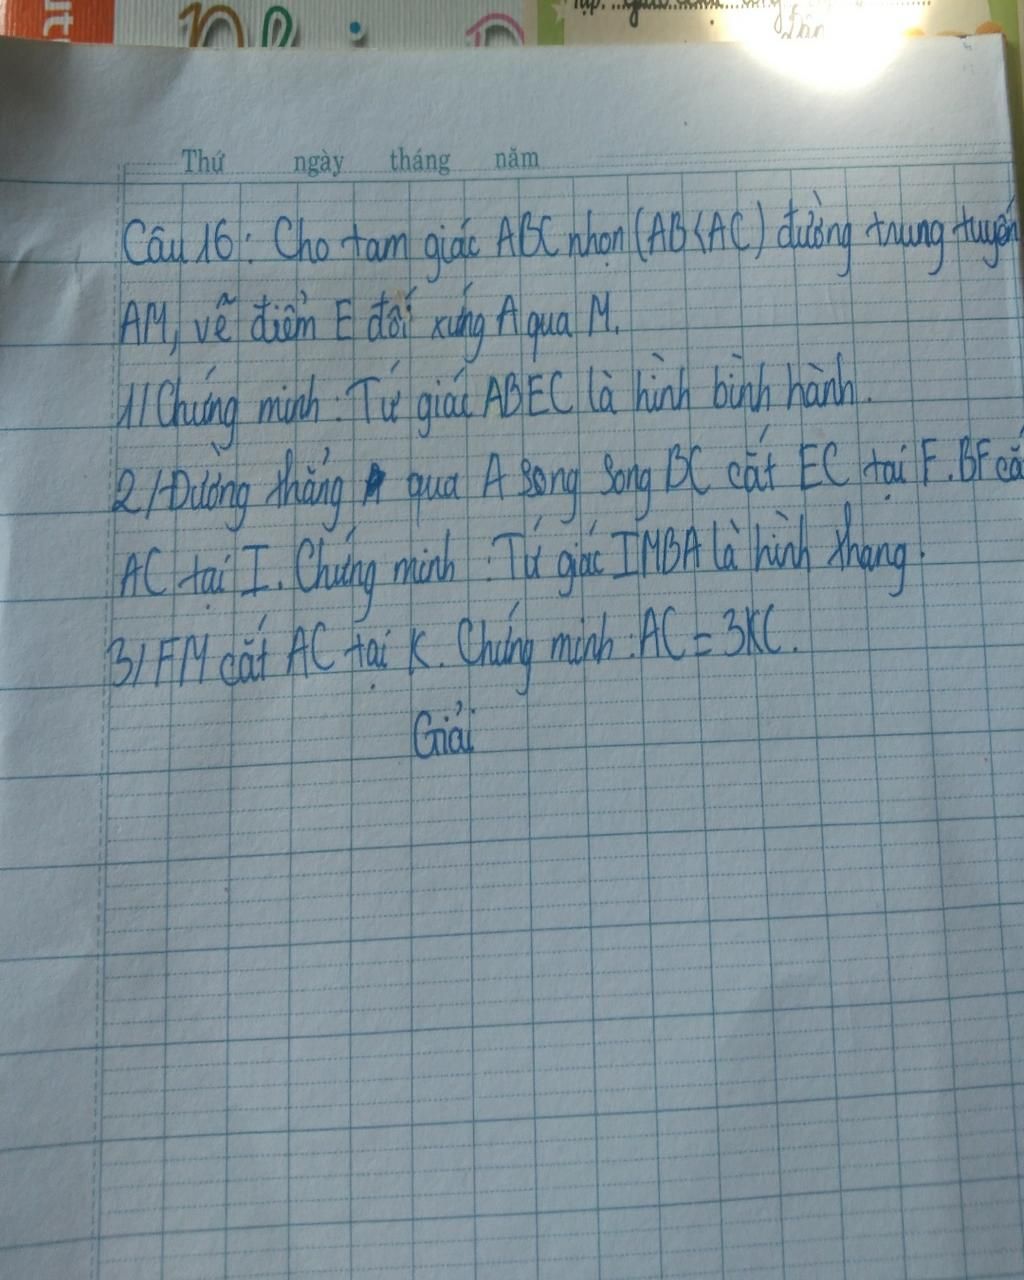 Đàn
Thứ ngày tháng năm
Câu 16: Cho tam giác ABC nhọn (AB<AC) đường trung tuyến
AM, vẽ điểm E đối xứng A qua M.
1/ Chứng minh: Tứ giác ABEC là hình bình hành.
2/ Đường thẳng qua A song song BC cắt EC tại F. BF cắ
AC tại I. Chứng minh: Tứ giác IMBA là hình thang.
3/ FM cắt AC tại K. Chứng minh: AC = 3KC.
Giải